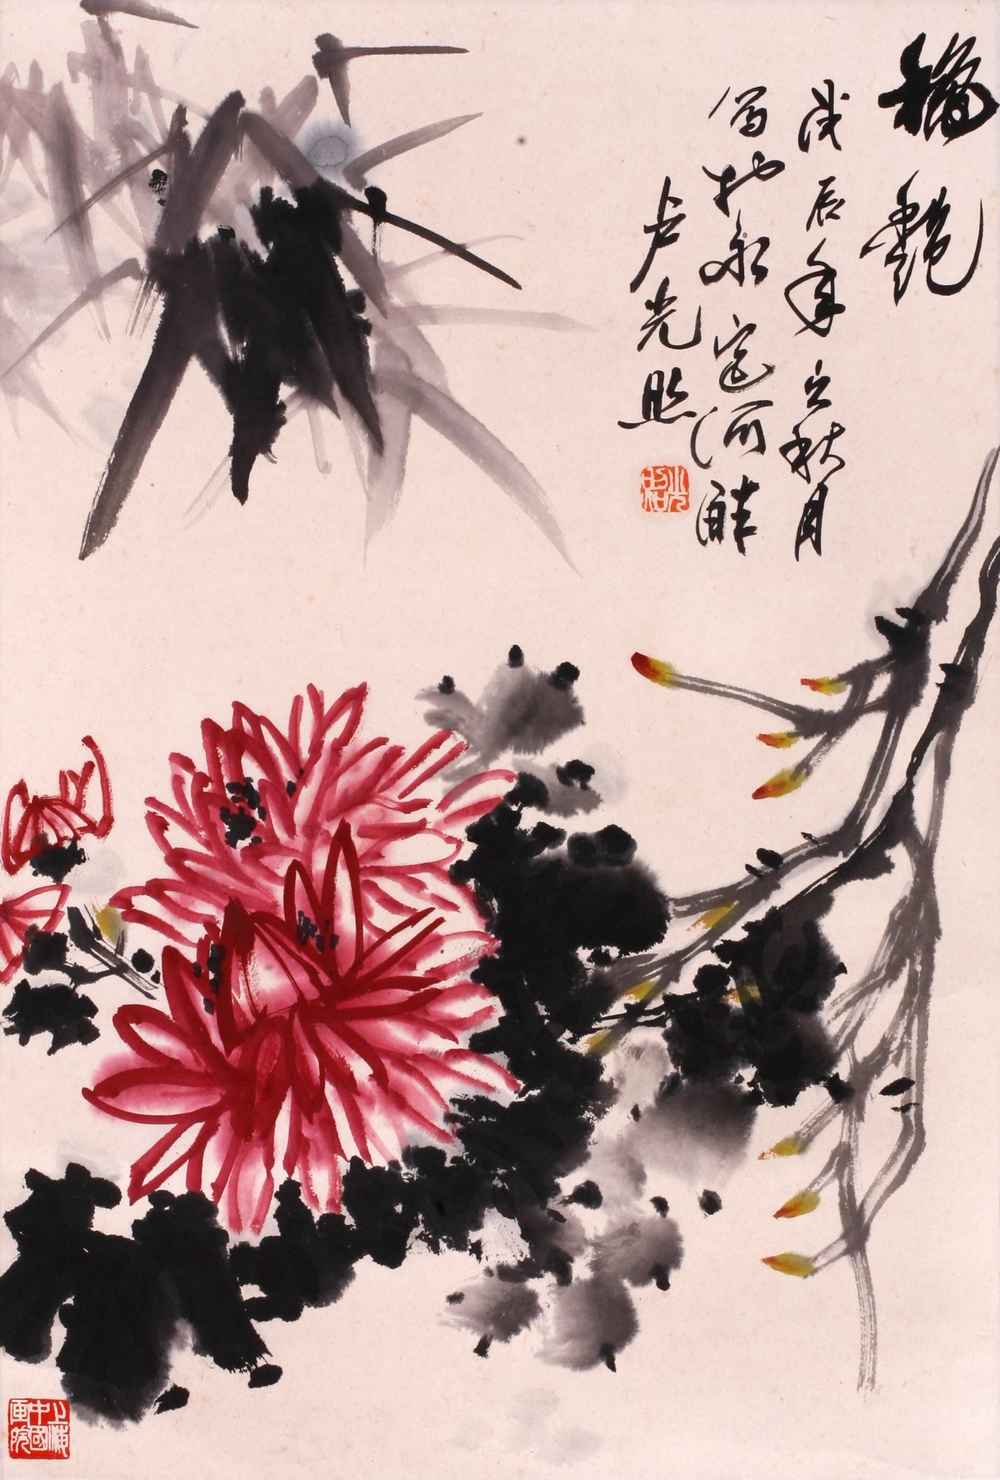 穐艷
戊辰年之秋月
写於永定河畔
卢光照
光照
上海中國画院